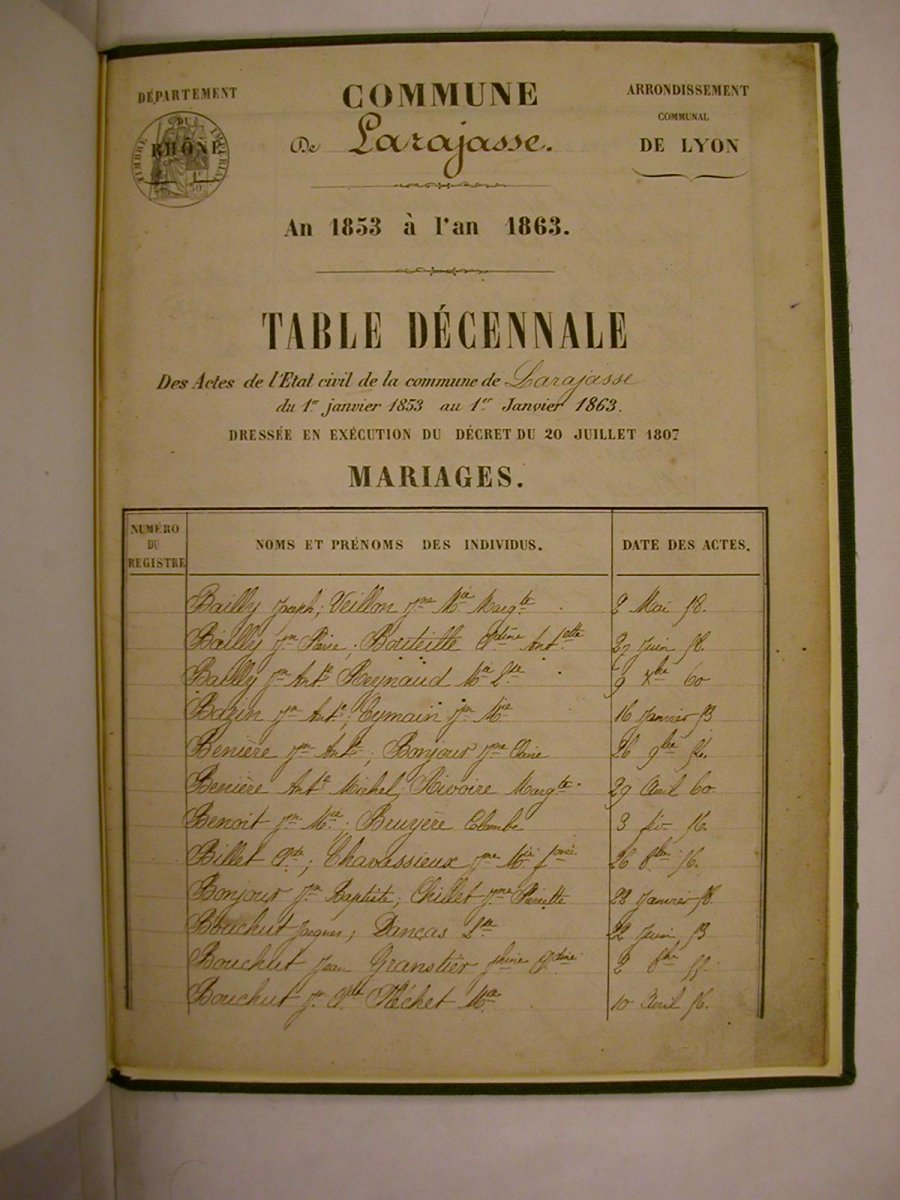 DÉPARTEMENT
DU
RHÔNE
TIMBRE IMPERIAL
COMMUNE
De Larajasse.
ARRONDISSEMENT
COMMUNAL
DE LYON
An 1853 à l'an 1863.
TABLE DÉCENNALE
Des Actes de l'Etat civil de la commune de Larajasse
du 1er janvier 1853 au 1er Janvier 1863.
DRESSÉE EN EXÉCUTION DU DÉCRET DU 20 JUILLET 1807
MARIAGES.
NUMÉRO DU REGISTRE NOMS ET PRÉNOMS DES INDIVIDUS. DATE DES ACTES.
Bailly Joseph; Veillon Jne Mie Margte 2 Mai 58.
Bailly Jn Pierre; Bouteille Antette 27 Juin 58.
Bailly Jn Ante Reynaud Mie 9 Xbre 60
Bazin Jn Ante; Eymain Jne Mie 16 Janvier 53
Benière Jn Ante; Bonjour Jne Claire 26 9bre 56.
Benière Ante Michel; Rivoire Margte 29 Avril 60
Benoit Jn Mie Bruyère Colombe 3 fév. 56.
Billet Cde; Chavassieux Jne Mie 26 8bre 56.
Bonjour Jn Baptiste; Chillet Jne Pierrette 28 Janvier 58.
Bouchut Jacques; Dancas 22 Juin 53
Bouchut Jean Granstier 2 8bre 55.
Bouchut Jn Cde Fléchet Mie 10 Avril 56.